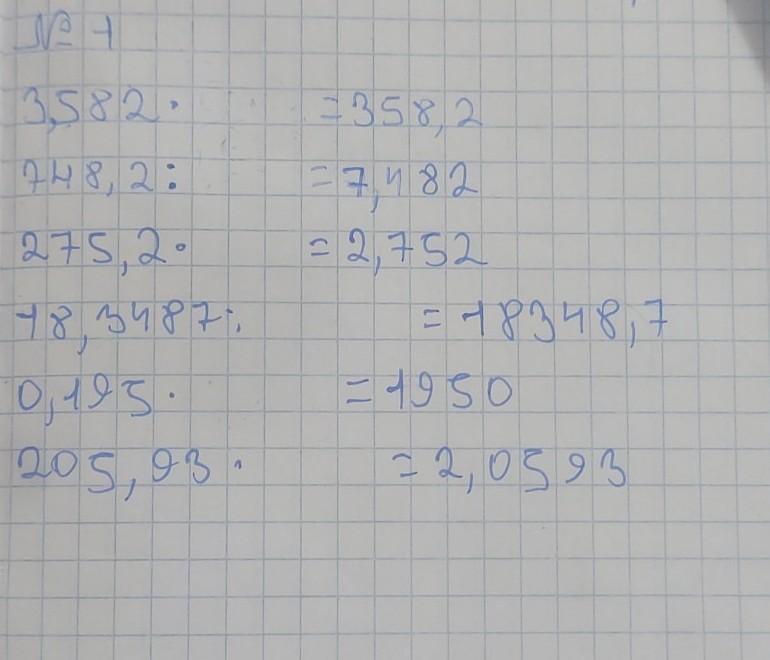 № 1
3,582 · = 358,2
748,2 : = 7,482
275,2 · = 2,752
18,3487 : = 18348,7
0,195 · = 1950
205,93 · = 2,0593